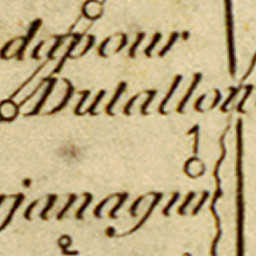 dapour
Dutallou
1
janagur
2